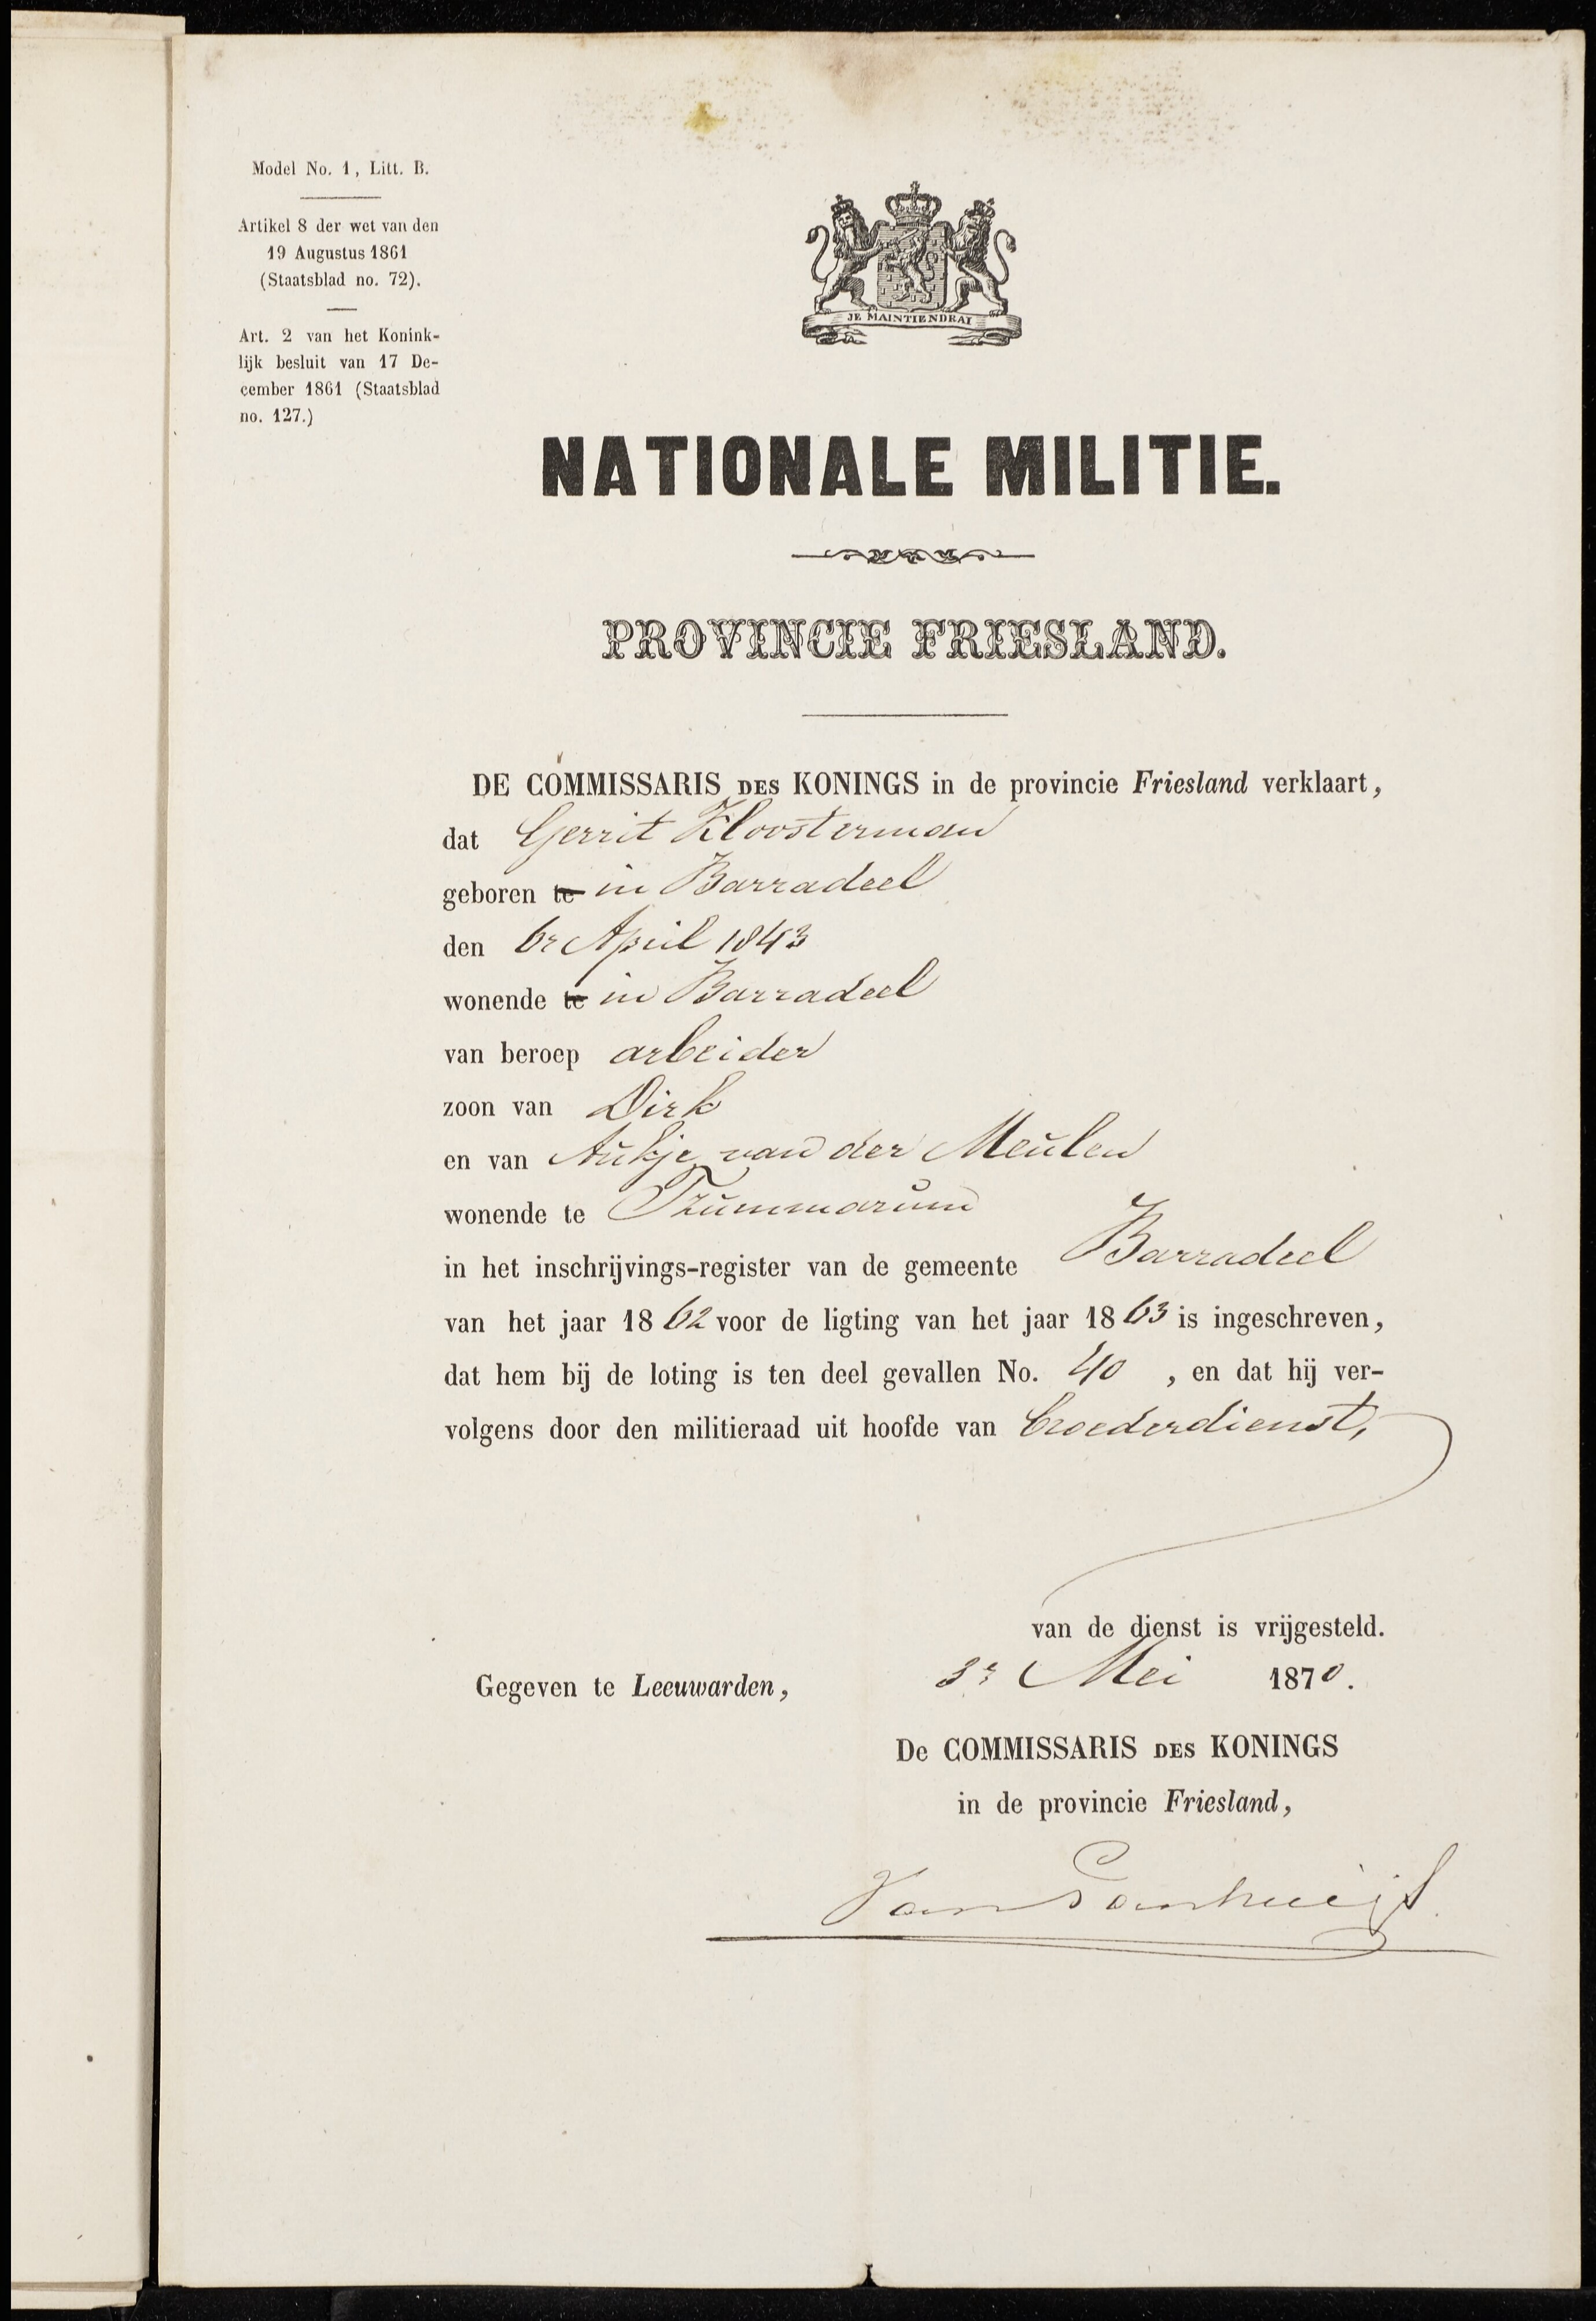 Model No. 1, Litt. B.
Artikel 8 der wet van den
19 Augustus 1861
(Staatsblad no. 72).
Art. 2 van het Konink-
lijk besluit van 17 De-
cember 1861 (Staatsblad
no. 127.)
JE MAINTIENDRAI
NATIONALE MILITIE.
PROVINCIE FRIESLAND.
DE COMMISSARIS DES KONINGS in de provincie Friesland verklaart,
dat Gerrit Kloosterman
geboren te in Barradeel
den 6e April 1843
wonende te in Barradeel
van beroep arbeider
zoon van Dirk
en van Aukje van der Meulen
wonende te Tzummarum
in het inschrijvings-register van de gemeente Barradeel
van het jaar 1862 voor de ligting van het jaar 1863 is ingeschreven,
dat hem bij de loting is ten deel gevallen No. 40 , en dat hij ver-
volgens door den militieraad uit hoofde van broederdienst,
van de dienst is vrijgesteld.
Gegeven te Leeuwarden, 3e Mei 1870.
De COMMISSARIS DES KONINGS
in de provincie Friesland,
Van Panhuijs